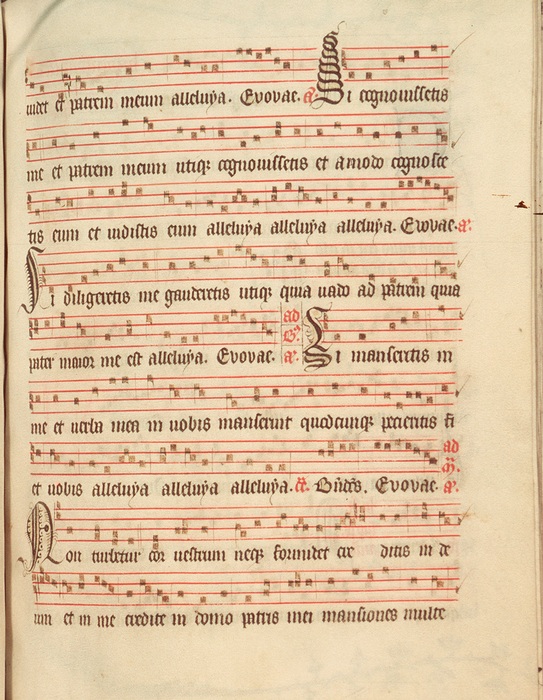 uidet et patrem meum alleluya. Evovae. a. Si cognouissetis
me et patrem meum utiqꝫ cognouissetis et amodo cognosce
tis eum et uidistis eum alleluya alleluya alleluya. Evovae. a.
Si diligeretis me gauderetis utiqꝫ quia uado ad patrem quia
ad B.
pater maior me est alleluya. Evovae. a. Si manseritis in
me et uerba mea in uobis manserint quodcunqꝫ pecieritis fi
ad M.
et uobis alleluya alleluya alleluya. Evovae. a.
Non turbetur cor uestrum neqꝫ formidet cre ditis in de
um et in me credite in domo patris mei mansiones multe